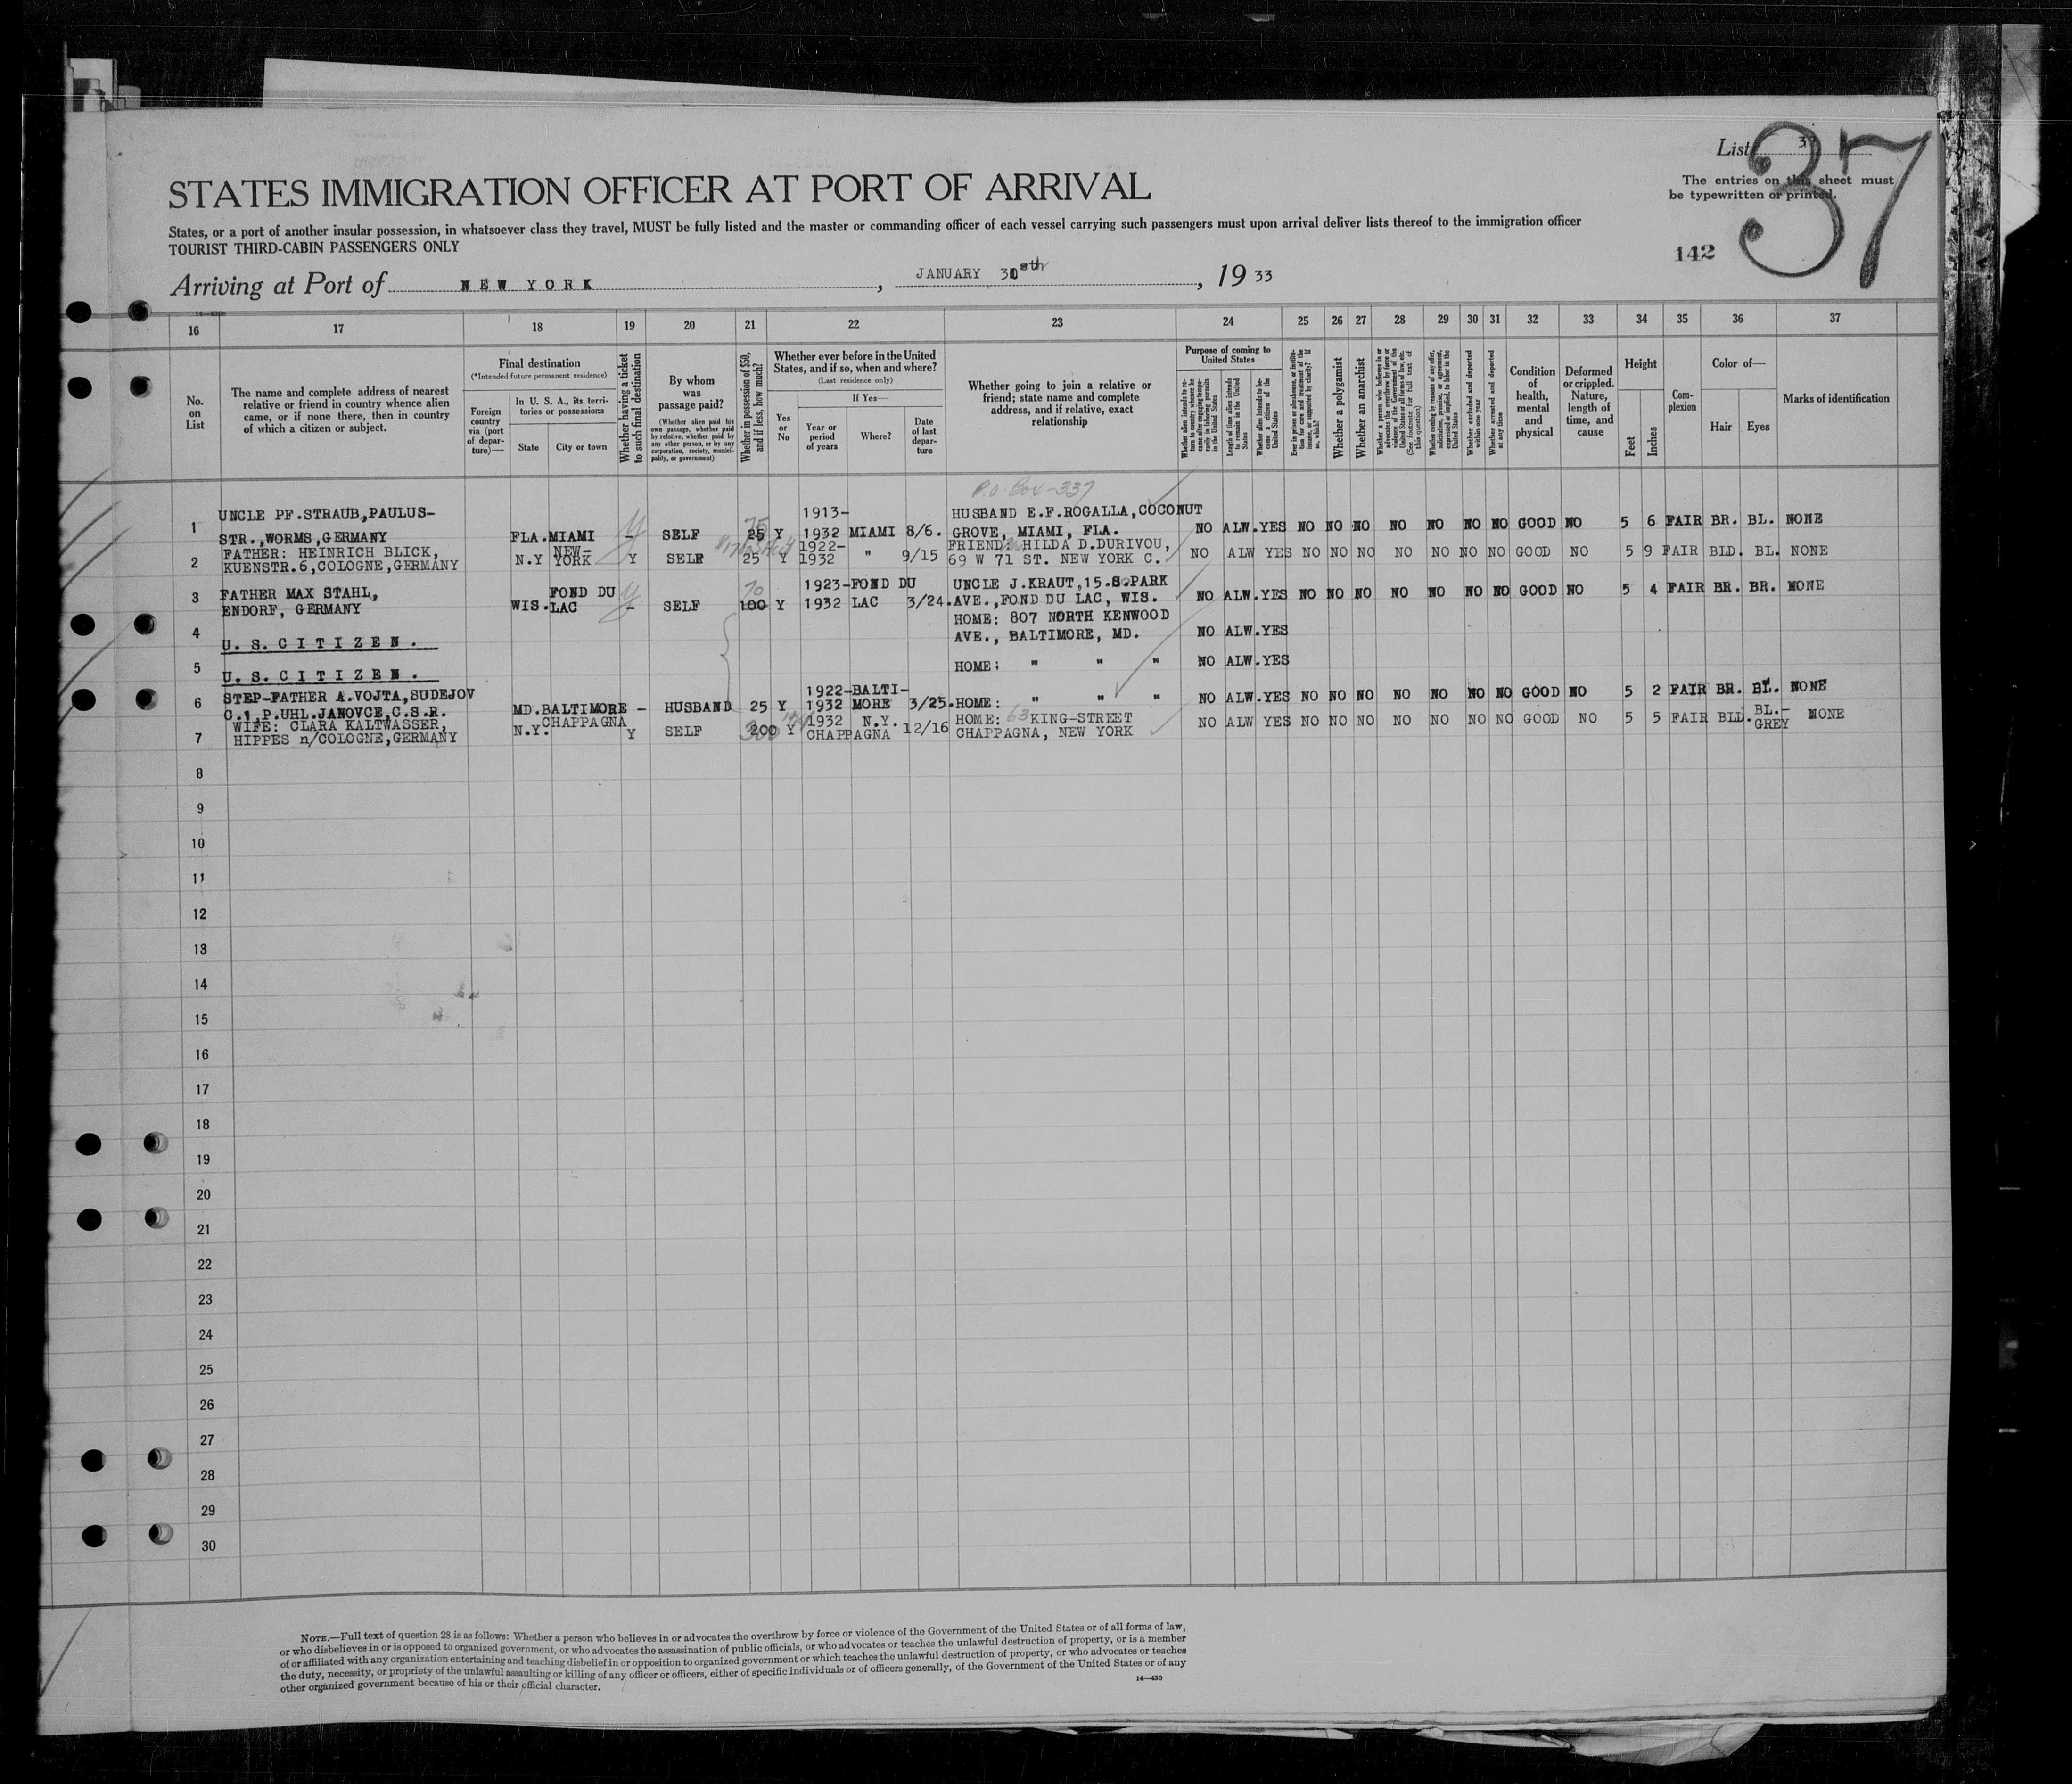 List 37
37
The entries on this sheet must
be typewritten or printed.
142
STATES IMMIGRATION OFFICER AT PORT OF ARRIVAL
States, or a port of another insular possession, in whatsoever class they travel, MUST be fully listed and the master or commanding officer of each vessel carrying such passengers must upon arrival deliver lists thereof to the immigration officer
TOURIST THIRD-CABIN PASSENGERS ONLY
Arriving at Port of NEW YORK, JANUARY 30th, 1933
16 17 18 19 20 21 22 23 24 25 26 27 28 29 30 31 32 33 34 35 36 37
No. on List
The name and complete address of nearest
relative or friend in country whence alien
came, or if none there, then in country
of which a citizen or subject.
Final destination
(*Intended future permanent residence)
Foreign country via (port of departure)—
In U. S. A., its territories or possessions
State
City or town
Whether having a ticket to such final destination
By whom was passage paid?
(Whether alien paid his own passage, whether paid by relative, whether paid by any other person, or by any corporation, society, municipality, or government)
Whether in possession of $50, and if less, how much?
Whether ever before in the United
States, and if so, when and where?
(Last residence only)
Yes or No
If Yes—
Year or period of years
Where?
Date of last departure
Whether going to join a relative or
friend; state name and complete
address, and if relative, exact
relationship
Purpose of coming to United States
Whether alien intends to return to country whence he came after engaging temporarily in laboring pursuits in the United States
Length of time alien intends to remain in the United States
Whether alien intends to become a citizen of the United States
Ever in prison or almshouse, or institution for care and treatment of the insane, or supported by charity? If so, which?
Whether a polygamist
Whether an anarchist
Whether a person who believes in or advocates the overthrow by force or violence of the Government of the United States or all forms of law, etc. (See footnote for full text of this question)
Whether coming by reason of any offer, solicitation, promise, or agreement, expressed or implied, to labor in the United States
Whether excluded and deported within one year
Whether arrested and deported at any time
Condition of health, mental and physical
Deformed or crippled. Nature, length of time, and cause
Height
Feet
Inches
Complexion
Color of—
Hair
Eyes
Marks of identification
P.O. Box-337
1 UNCLE PF.STRAUB,PAULUS- 1913- HUSBAND E.F.ROGALLA,COCONUT
STR.,WORMS,GERMANY FLA. MIAMI - SELF 75 25 Y 1932 MIAMI 8/6. GROVE, MIAMI, FLA. NO ALW. YES NO NO NO NO NO NO NO GOOD NO 5 6 FAIR BR. BL. NONE
2 FATHER: HEINRICH BLICK, NEW- 1922- FRIEND: HILDA D.DURIVOU,
KUENSTR.6,COLOGNE,GERMANY N.Y YORK Y SELF 25 Y 1932 " 9/15 69 W 71 ST. NEW YORK C. NO ALW YES NO NO NO NO NO NO NO GOOD NO 5 9 FAIR BLD. BL. NONE
3 FATHER MAX STAHL, FOND DU 70 1923- FOND DU UNCLE J.KRAUT,15.S.PARK
ENDORF, GERMANY WIS. LAC - SELF 100 Y 1932 LAC 3/24. AVE.,FOND DU LAC, WIS. NO ALW. YES NO NO NO NO NO NO NO GOOD NO 5 4 FAIR BR. BR. NONE
HOME: 807 NORTH KENWOOD
4 U. S. C I T I Z E N . AVE., BALTIMORE, MD. NO ALW. YES
5 U. S. C I T I Z E N . HOME: " " " NO ALW. YES
6 STEP-FATHER A.VOJTA,SUDEJOV 1922- BALTI-
C.1,P.UHL.JANOVCE,C.S.R. MD. BALTIMORE - HUSBAND 25 Y 1932 MORE 3/25. HOME: " " " NO ALW. YES NO NO NO NO NO NO NO GOOD NO 5 2 FAIR BR. BL. NONE
7 WIFE: CLARA KALTWASSER, CHAPPAGNA 1932 N.Y. HOME: 63 KING-STREET
HIPPES n/COLOGNE,GERMANY N.Y. Y SELF 200 Y CHAPPAGNA 12/16 CHAPPAGNA, NEW YORK NO ALW YES NO NO NO NO NO NO NO GOOD NO 5 5 FAIR BLD. BL.-GREY NONE
8
9
10
11
12
13
14
15
16
17
18
19
20
21
22
23
24
25
26
27
28
29
30
NOTE.—Full text of question 28 is as follows: Whether a person who believes in or advocates the overthrow by force or violence of the Government of the United States or of all forms of law,
or who disbelieves in or is opposed to organized government, or who advocates the assassination of public officials, or who advocates or teaches the unlawful destruction of property, or is a member
of or affiliated with any organization entertaining and teaching disbelief in or opposition to organized government or which teaches the unlawful destruction of property, or who advocates or teaches
the duty, necessity, or propriety of the unlawful assaulting or killing of any officer or officers, either of specific individuals or of officers generally, of the Government of the United States or of any
other organized government because of his or their official character.
14—430